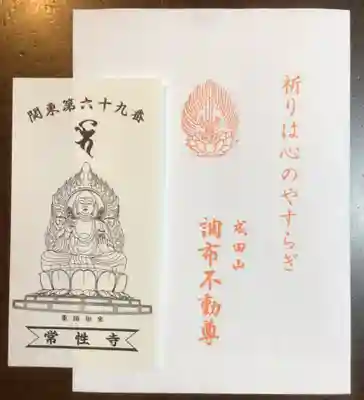 祈りは心のやすらぎ
成田山
調布不動尊
関東第六十九番
常性寺